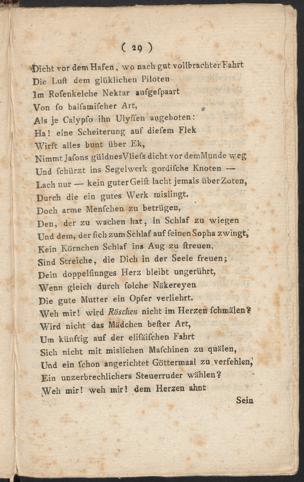 ( 29 )
Dicht vor dem Hafen, wo nach gut vollbrachter Fahrt
Die Luft dem glüklichen Piloten
Im Rosenkelche Nektar aufgespaart
Von so balsamischer Art,
Als je Calypso ihn Ulyssen angeboten:
Ha! eine Scheiterung auf diesem Flek
Wirft alles bunt über Ek,
Nimmt Jasons güldnes Vließ dicht vor dem Munde weg
Und schürzt ins Segelwerk gordische Knoten —
Lach nur — kein guter Geist lacht jemals über Zoten,
Durch die ein gutes Werk mislingt.
Doch arme Menschen zu betrügen,
Den, der zu wachen hat, in Schlaf zu wiegen
Und dem, der sich zum Schlaf auf seinen Sopha zwingt,
Kein Körnchen Schlaf ins Aug zu streuen,
Sind Streiche, die Dich in der Seele freuen;
Dein doppelsinnges Herz bleibt ungerührt,
Wenn gleich durch solche Näkereyen
Die gute Mutter ein Opfer verliehrt.
Weh mir! wird Röschen nicht im Herzen schmälen?
Wird nicht das Mädchen bester Art,
Um künftig auf der elisäischen Fahrt
Sich nicht mit mislichen Maschinen zu quälen,
Und ein schon angerichtet Göttermaal zu verfehlen,
Ein unzerbrechlichers Steuerruder wählen?
Weh mir! weh mir! dem Herzen ahnt
Sein